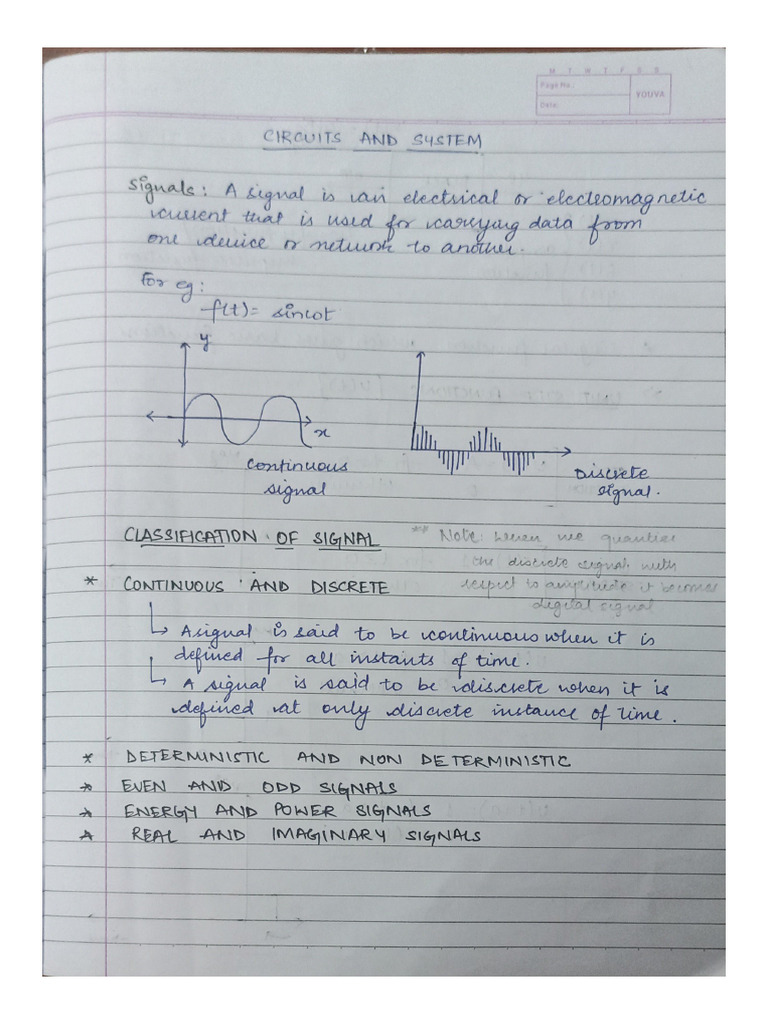 M T W T F S S
Page No.:
YOUVA
Date:
CIRCUITS AND SYSTEM
Signals: A signal is an electrical or electromagnetic
current that is used for carrying data from
one device or network to another.
For eg:
f(t) = sinωt
y
x
Continuous
signal
Discrete
signal.
CLASSIFICATION OF SIGNAL
** Note: When we quantise
the discrete signal with
respect to amplitude it becomes
digital signal
* CONTINUOUS AND DISCRETE
↳ A signal is said to be continuous when it is
defined for all instants of time.
↳ A signal is said to be discrete when it is
defined at only discrete instance of time.
* DETERMINISTIC AND NON DETERMINISTIC
* EVEN AND ODD SIGNALS
* ENERGY AND POWER SIGNALS
* REAL AND IMAGINARY SIGNALS